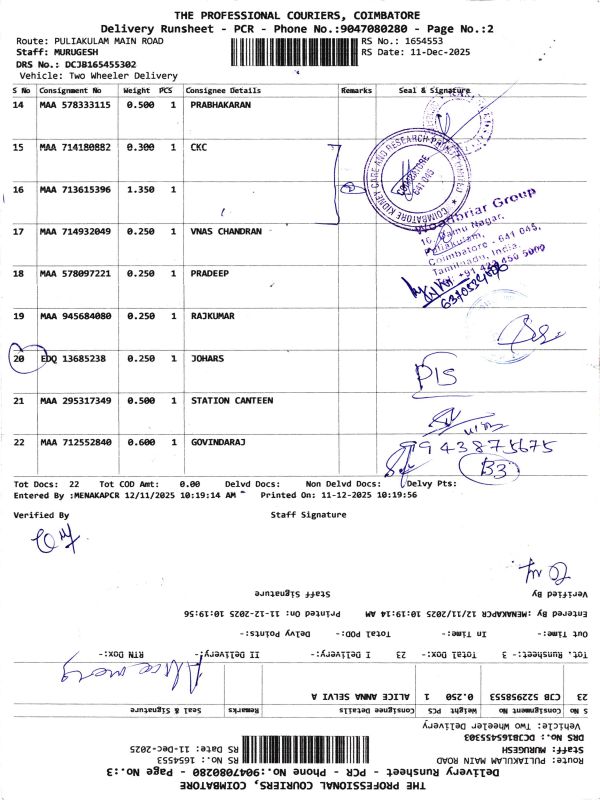 THE PROFESSIONAL COURIERS, COIMBATORE
Delivery Runsheet - PCR - Phone No.:9047080280 - Page No.:2
Route: PULIAKULAM MAIN ROAD RS No.: 1654553
Staff: MURUGESH RS Date: 11-Dec-2025
DRS No.: DCJB165455302
Vehicle: Two Wheeler Delivery
S No Consignment No Weight PCS Consignee Details Remarks Seal & Signature
14 MAA 578333115 0.500 1 PRABHAKARAN
15 MAA 714180882 0.300 1 CKC
16 MAA 713615396 1.350 1
COIMBATORE KIDNEY CARE AND RESEARCH PRIVATE LIMITED
COIMBATORE
641 045
17 MAA 714932049 0.250 1 VNAS CHANDRAN
Woodbriar Group
Coimbatore - 641 045,
Tamilnadu, India.
18 MAA 578097221 0.250 1 PRADEEP
19 MAA 945684080 0.250 1 RAJKUMAR
20 EDQ 13685238 0.250 1 JOHARS
PIS
21 MAA 295317349 0.500 1 STATION CANTEEN
22 MAA 712552840 0.600 1 GOVINDARAJ
9943875675
B3
Tot Docs: 22 Tot COD Amt: 0.00 Delvd Docs: Non Delvd Docs: Delvy Pts:
Entered By :MENAKAPCR 12/11/2025 10:19:14 AM Printed On: 11-12-2025 10:19:56
Verified By Staff Signature
THE PROFESSIONAL COURIERS, COIMBATORE
Delivery Runsheet - PCR - Phone No.:9047080280 - Page No.:3
Route: PULIAKULAM MAIN ROAD RS No.: 1654553
Staff: MURUGESH RS Date: 11-Dec-2025
DRS No.: DCJB165455303
Vehicle: Two Wheeler Delivery
S No Consignment No Weight PCS Consignee Details Remarks Seal & Signature
23 CJB 522958553 0.250 1 ALICE ANNA SELVI A
Tot. Runsheet:- 3 Total Dox:- 23 I Delivery:- II Delivery:- RTN Dox:-
Out Time:- In Time:- Total POD:- Delvy Points:-
Entered By :MENAKAPCR 12/11/2025 10:19:14 AM Printed On: 11-12-2025 10:19:56
Verified By Staff Signature